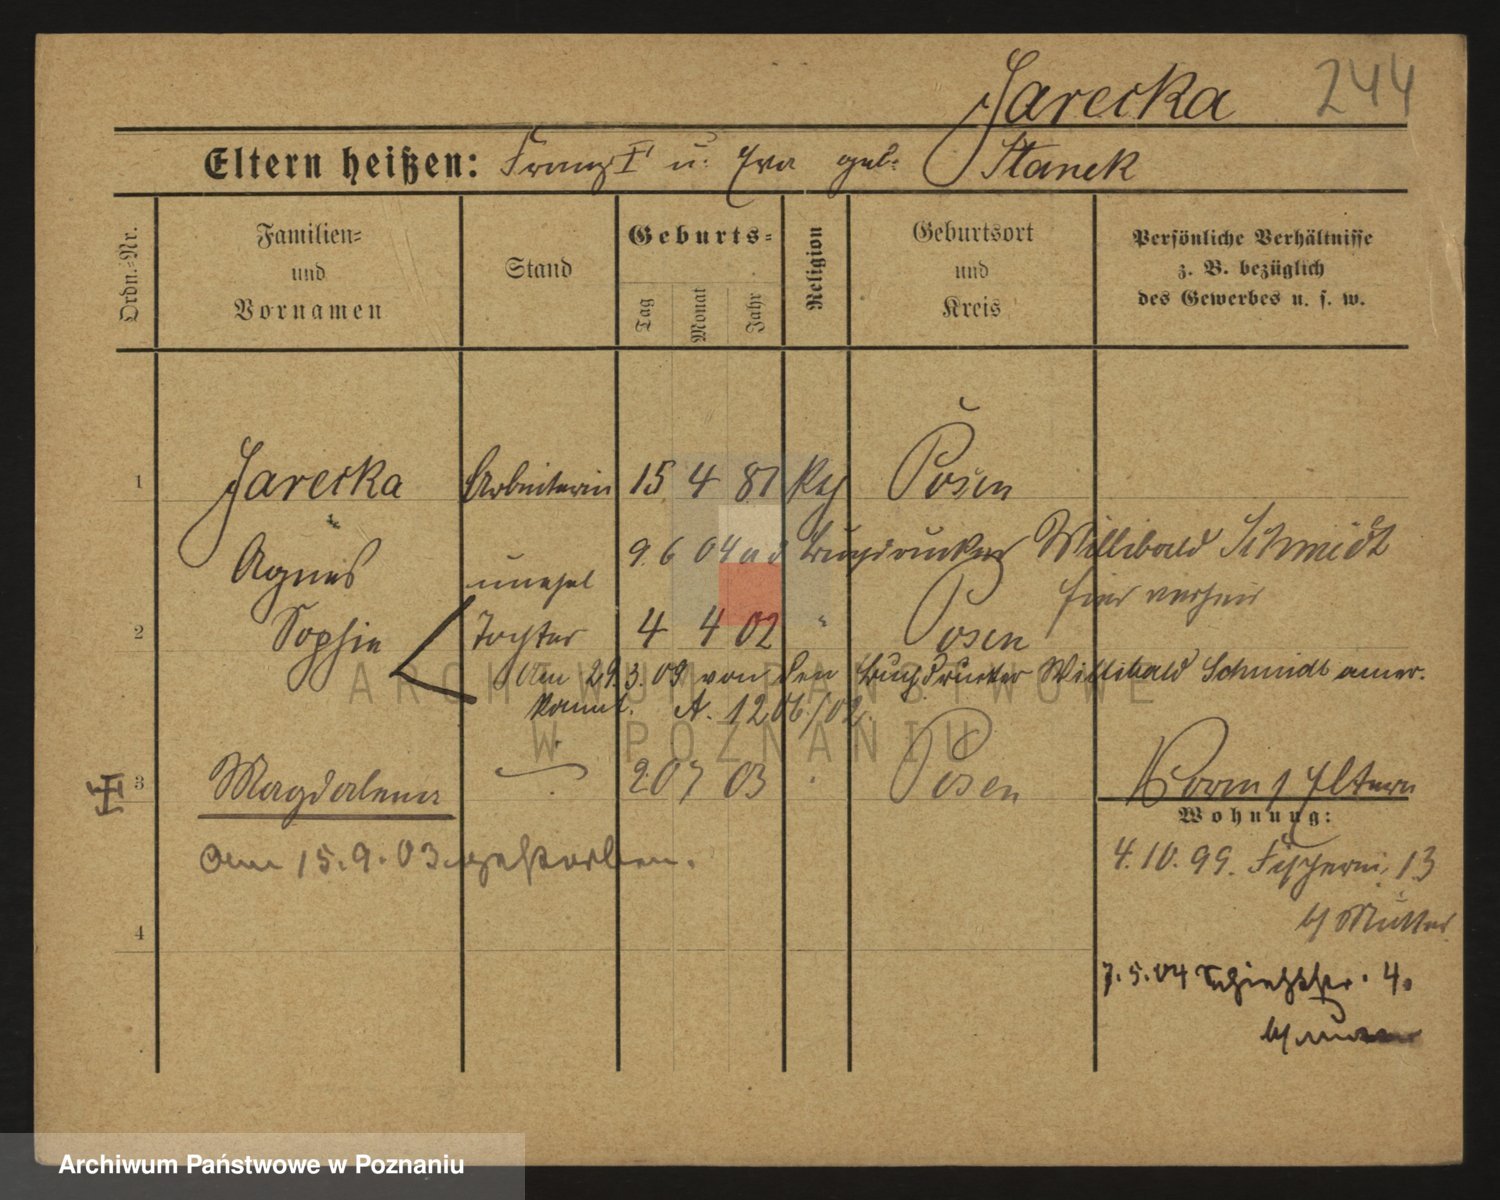 Jarecka 244
Eltern heißen: Franz I u. Eva geb. Stanek
Ordn.-Nr.
Familien-
und
Vornamen
Stand
Geburts-
Tag
Monat
Jahr
Religion
Geburtsort
und
Kreis
Persönliche Verhältnisse
z. B. bezüglich
des Gewerbes u. s. w.
1 Jarecka Arbeiterin 15 4 81 Posen
Agnes 9. 6 04 Buchdrucker Willibald Schmidt
hier
2 Sophie unehel Tochter 4 4 02 " Posen
Am 29. 3. 09 von den Buchdrucker Willibald Schmidt aner-
kannt. A. 1206/02.
3 Magdalena 20 7 03 Posen
Am 15. 9. 03 gestorben.
4
Eltern
Wohnung:
4. 10. 99. Fischerei 13
b/ Mutter
7. 5. 04 4.
b/
ARCHIWUM PAŃSTWOWE
W POZNANIU
Archiwum Państwowe w Poznaniu